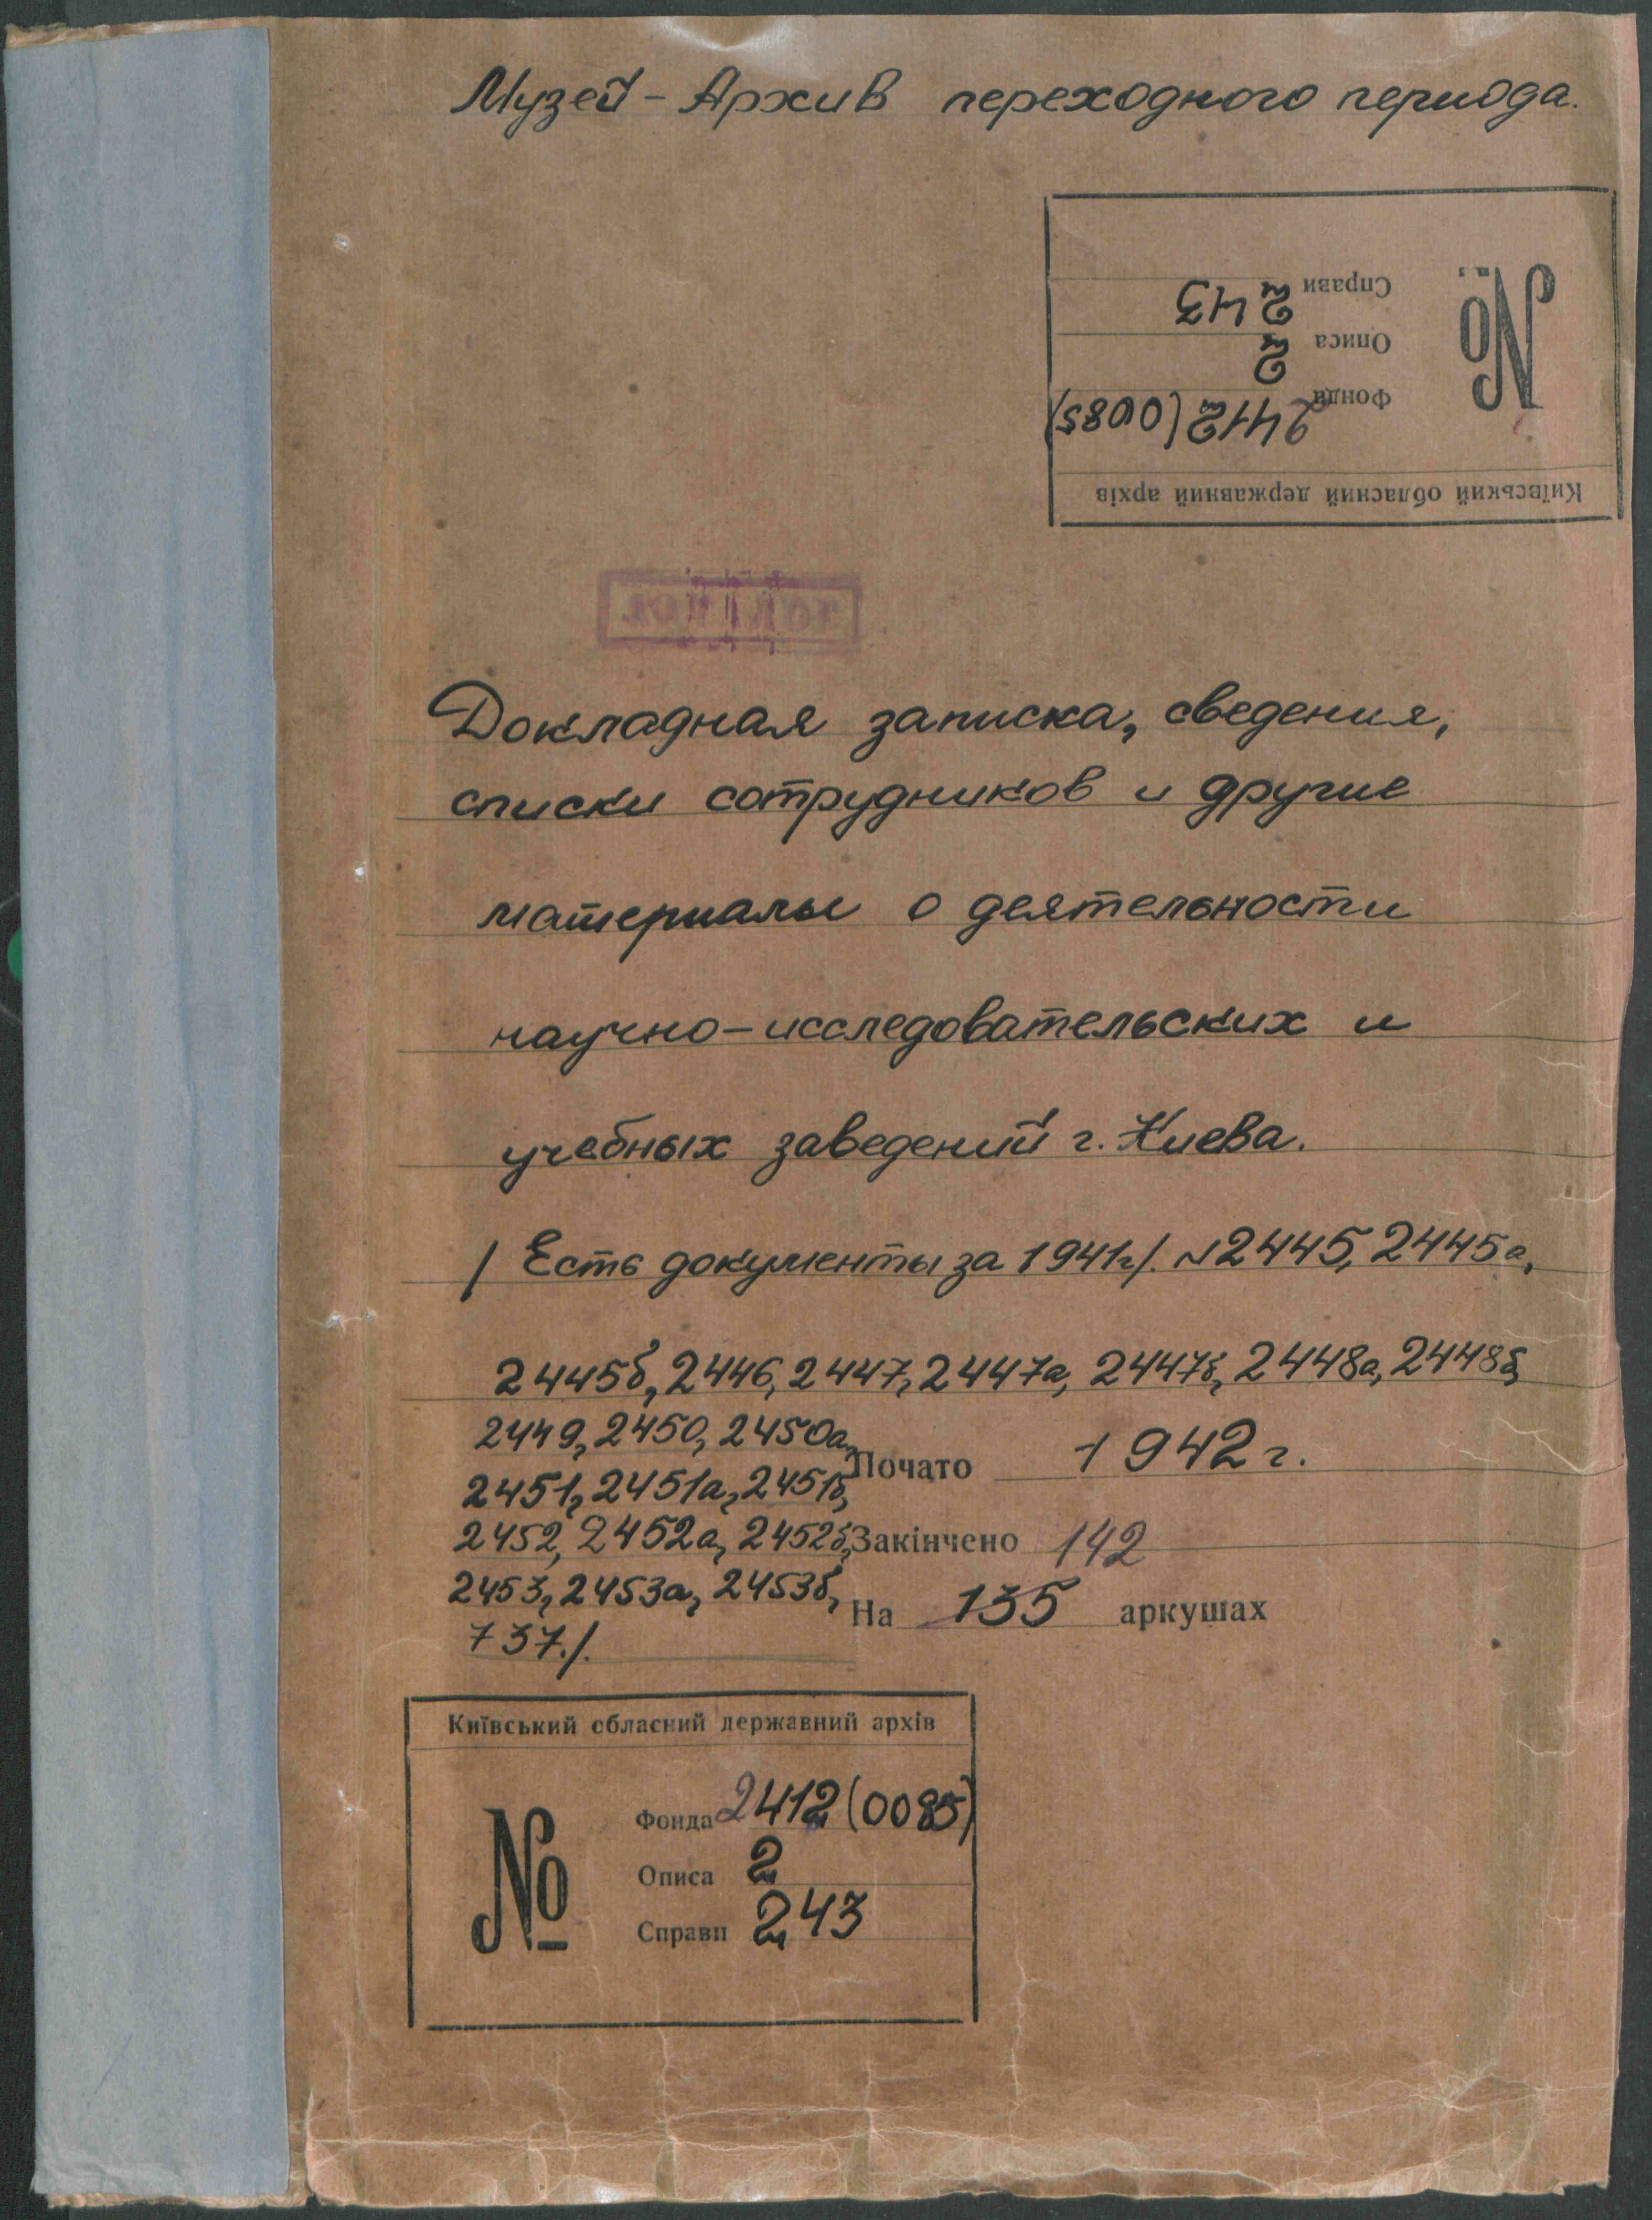 Музей-Архив переходного периода.
Київський обласний державний архів
№
Фонда 2412 (0085)
Описа 2
Справи 243
Докладная записка, сведения,
списки сотрудников и другие
материалы о деятельности
научно-исследовательских и
учебных заведений г. Киева.
/Есть документы за 1941г/. №2445, 2445а,
2445б, 2446, 2447, 2447а, 2447б, 2448а, 2448б,
2449, 2450, 2450а,
2451, 2451а, 2451б,
2452, 2452а, 2452б,
2453, 2453а, 2453б,
737./.
Почато 1942 г.
Закінчено
142
На 135 аркушах
Київський обласний державний архів
№
Фонда 2412 (0085)
Описа 2
Справи 243